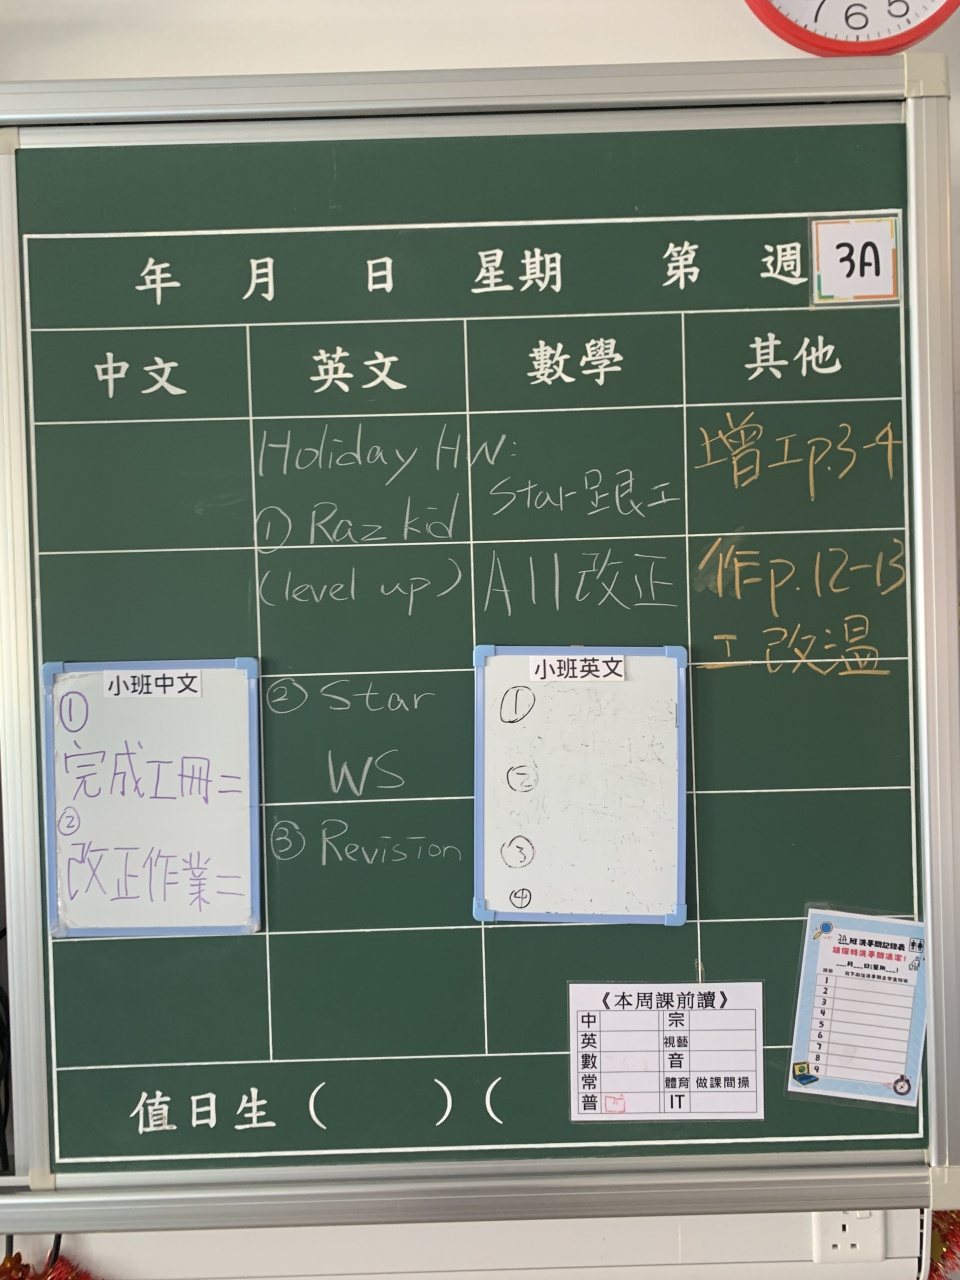 7 6 5
年 月 日 星期 第 週
3A
中文 英文 數學 其他
Holiday HW:
① Raz kid
(level up)
② Star
WS
③ Revision
Star 跟工
All 改正
增工p.3-4
作p.12-13
工 改溫
小班中文
①
完成工冊二
②
改正作業二
小班英文
①
②
③
④
《本周課前讀》
中 宗
英 視藝
數 音
常 體育 做課間操
普 IT
3A班洗手間記錄表
請保持洗手間清潔!
___月___日(星期___)
1
2
3
4
5
6
7
8
9
值日生( )(